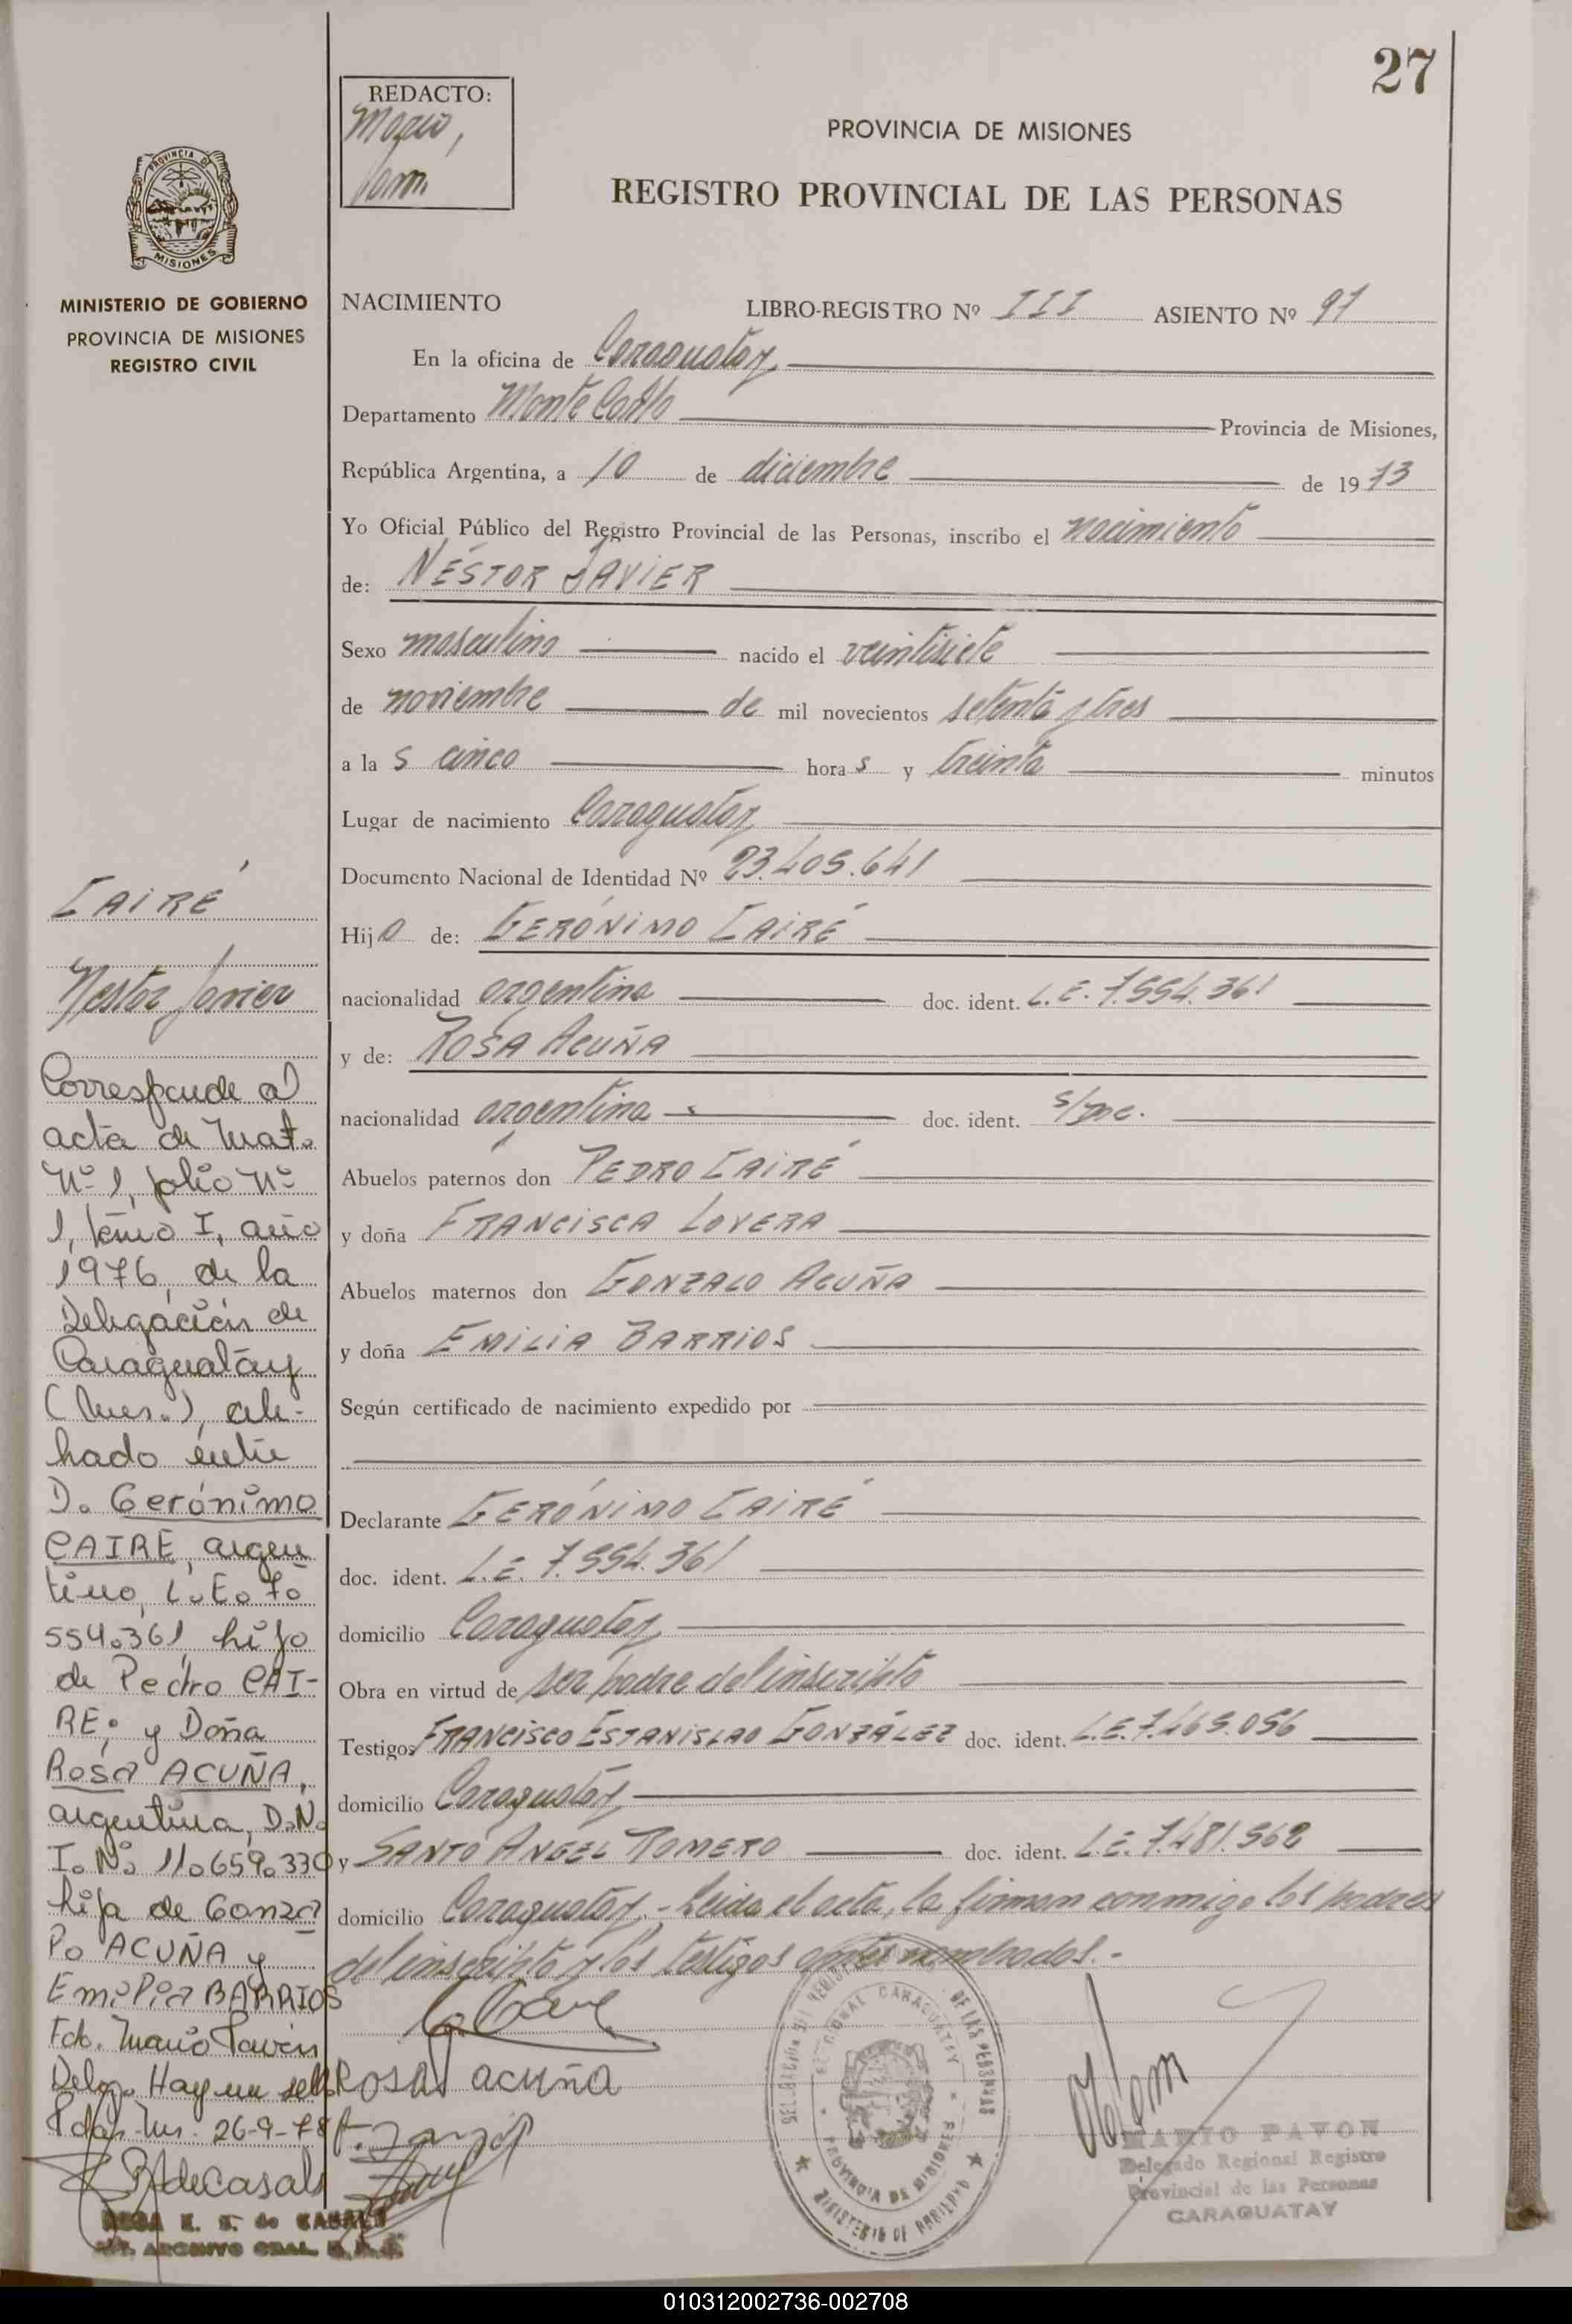 27
REDACTO:
PROVINCIA DE MISIONES
REGISTRO PROVINCIAL DE LAS PERSONAS
PROVINCIA DE
MISIONES
MINISTERIO DE GOBIERNO
PROVINCIA DE MISIONES
REGISTRO CIVIL
NACIMIENTO LIBRO-REGISTRO Nº III ASIENTO Nº 91
En la oficina de Caraguatay
Departamento Monte Carlo Provincia de Misiones,
República Argentina, a 10 de diciembre de 1973
Yo Oficial Público del Registro Provincial de las Personas, inscribo el nacimiento
de: NÉSTOR JAVIER
Sexo masculino nacido el veintisiete
de noviembre de mil novecientos setenta y tres
a la s cinco hora s y treinta minutos
Lugar de nacimiento Caraguatay
Documento Nacional de Identidad Nº 23.405.641
Hij o de: GERÓNIMO CAIRÉ
nacionalidad argentina doc. ident. L.E. 7.554.361
y de: ROSA ACUÑA
nacionalidad argentina doc. ident.
Abuelos paternos don PEDRO CAIRÉ
y doña FRANCISCA LOVERA
Abuelos maternos don GONZALO ACUÑA
y doña EMILIA BARRIOS
Según certificado de nacimiento expedido por
Declarante GERÓNIMO CAIRÉ
doc. ident. L.E. 7.554.361
domicilio Caraguatay
Obra en virtud de ser padre del inscripto
Testigos FRANCISCO ESTANISLAO GONZÁLEZ doc. ident. L.E. 7.469.056
domicilio Caraguatay
y SANTO ANGEL ROMERO doc. ident. L.E. 7.481.562
domicilio Caraguatay.- Leida el acta, la firman conmigo los padres
del inscripto y los testigos antes nombrados.-
Rosa acuña
MARIO PAVON
Delegado Regional Registro
Provincial de las Personas
CARAGUATAY
CAIRÉ
Nestor Javier
Corresponde al
acta de Mat.
Nº 1, folio Nº
1, tomo I, año
1976, de la
Delegación de
Caraguatay
(Mnes.), cele-
brado entre
D. Gerónimo
CAIRE, argen
tino, L.E. 7.
554.361, hijo
de Pedro CAI-
RE; y Doña
Rosa ACUÑA,
argentina, D.N.
I. Nº 11.659.330
hija de Gonza
lo ACUÑA y
Emilia BARRIOS
Fdo. Mario Pavón
Deleg. Hay un sello
Pdas. Mnes. 26-9-78
R de Casals
E. S. de CASALS
ARCHIVO GRAL.
010312002736-002708